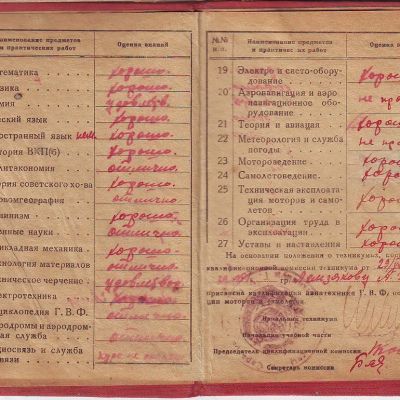 Наименование предметов
и практических работ
Оценка знаний
тематика хорошо.
зика хорошо.
мия удовлетв.
сский язык хорошо.
остранный язык нем. хорошо.
тория ВКП(б) хорошо.
литэкономия отлично.
ория советского хо-ва отлично.
ономгеография отлично
нинизм хорошо.
нные науки отлично.
икладная механика хорошо.
хнология материалов отлично.
хническое черчение удовлетвор.
ектротехника хорошо.
циклопедия Г.В.Ф. отлично.
эродромы и аэродром-
ная служба отлично.
диосвязь и служба
вязи
№№
п.п.
Наименование предметов
и практических работ
Оценка
19 Электро и свето-обору-
дование хорош
20 Аэронавигация и аэро
навигационное обо-
рудование не про
21 Теория и авиация хорош
22 Метеорология и служба
погоды не про
23 Мотороведение хорош
24 Самолетоведение хорош
25 Техническая эксплоата-
ция моторов и само-
летов хорош
26 Организация труда в
эксплоатации хорош
27 Уставы и наставления хорош
На основании положения о техникумах,
квалификационной комиссии техникума от
гр
присвоена квалификация авиатехника Г.В.Ф.
Начальник техникума
Начальник учебной части
Председатель квалификационной комиссии
Секретарь комиссии